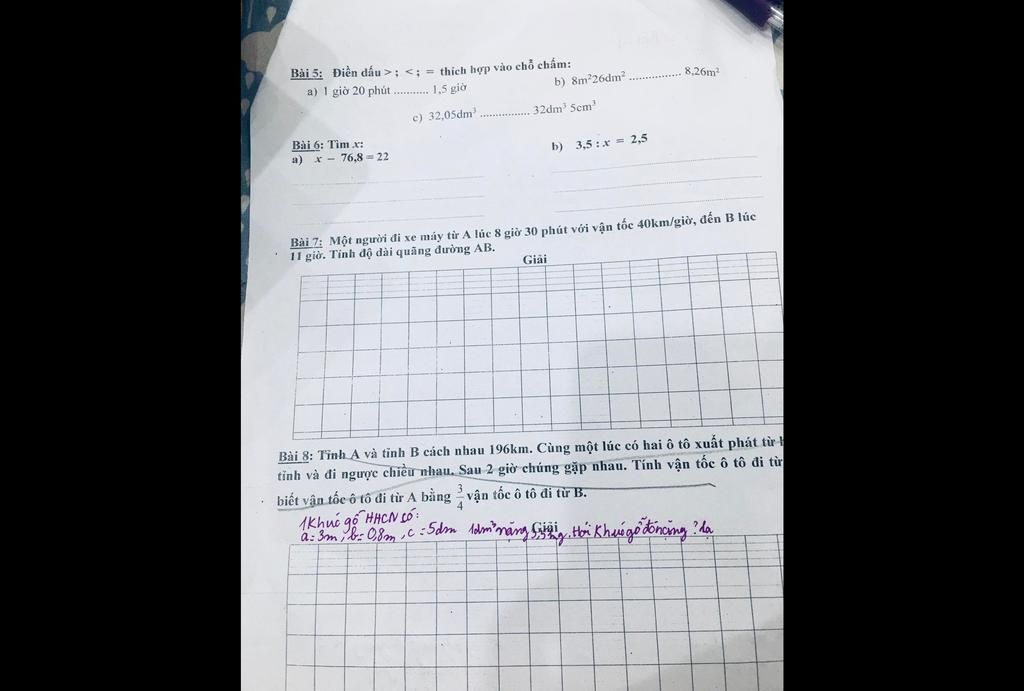 Bài 5: Điền dấu > ; < ; = thích hợp vào chỗ chấm:
a) 1 giờ 20 phút ........... 1,5 giờ b) 8m²26dm² ................ 8,26m²
c) 32,05dm³ ................ 32dm³ 5cm³
Bài 6: Tìm x:
a) x – 76,8 = 22 b) 3,5 : x = 2,5
Bài 7: Một người đi xe máy từ A lúc 8 giờ 30 phút với vận tốc 40km/giờ, đến B lúc
11 giờ. Tính độ dài quãng đường AB.
Giải
Bài 8: Tỉnh A và tỉnh B cách nhau 196km. Cùng một lúc có hai ô tô xuất phát từ
tỉnh và đi ngược chiều nhau. Sau 2 giờ chúng gặp nhau. Tính vận tốc ô tô đi từ
biết vận tốc ô tô đi từ A bằng 3/4 vận tốc ô tô đi từ B.
1 Khúc gỗ HHCN có:
a = 3m, b = 0,8m, c = 5dm 1dm³ nặng Hỏi Khúc gỗ đó nặng ? tạ
Giải